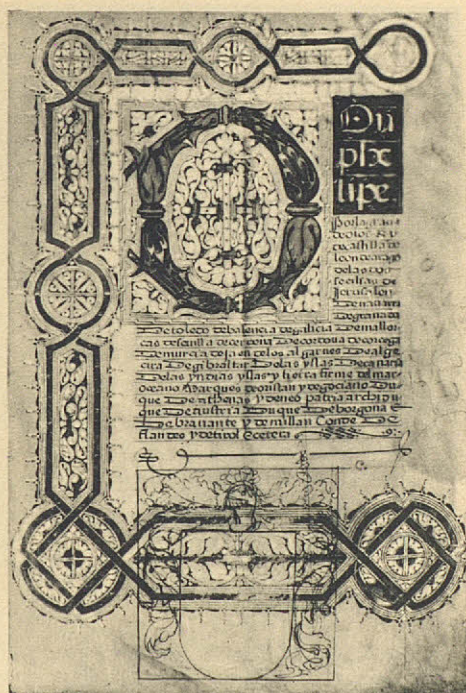 Du
phe
lipe
por la gracia
de dios Rey
de castilla de
leon de arago
de las dos
secilias de
Jerusalen
De navarra
De granada
De toledo de balencia de galicia De mallor
cas de sevilla de cerdena De cordova de corcega
De murcia de jaen de los algarues De alge
cira De gibraltar De las yslas De canaria
De las yndias yslas y tierra firme del mar
oceano Marques de oristan y de gociano Du
que De athenas y de neo patria archidu
que de austria Duque De borgona E
De brauante y de millan Conde De
flandes y de tirol Ecetera